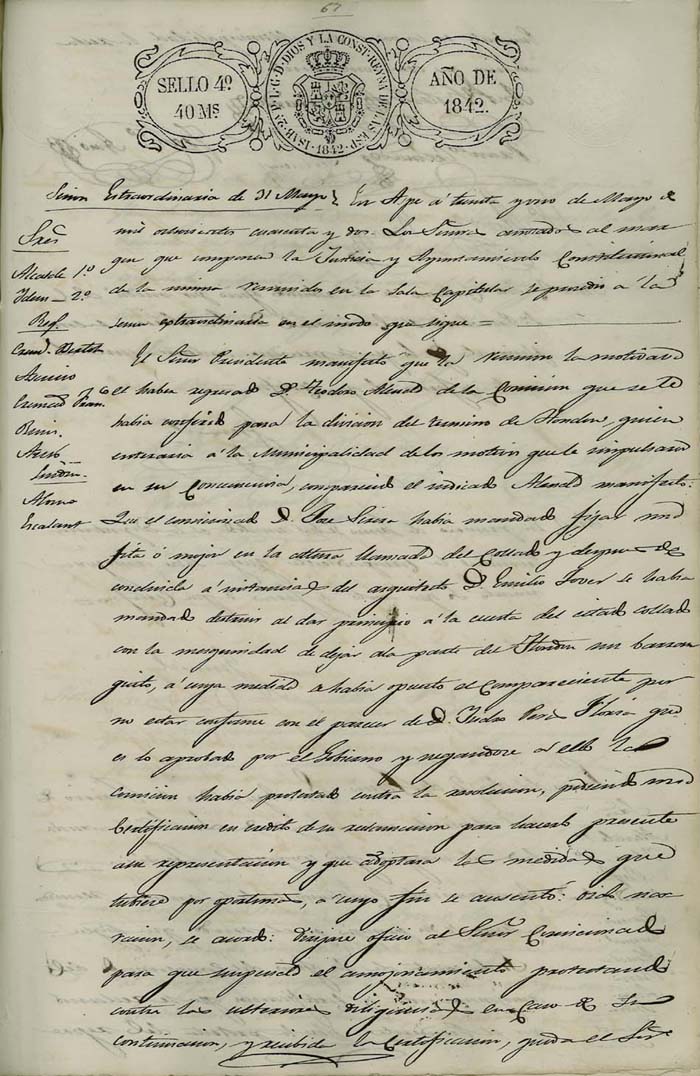 67
SELLO 4º
40 Ms
ISAB. 2ª P. L. G. D. DIOS Y LA CONST. REYNA DE LAS ESP.
1842
AÑO DE
1842.
Sesion Extraordinaria de 31 Mayo
En Aspe á treinta y uno de Mayo de
mil ochocientos cuarenta y dos. Los Señores anotados al mar
gen que componen la Justicia y Ayuntamiento Constitucional
de la misma reunidos en la Sala Capitular se procedio a la
sesion extraordinaria en el modo que sigue =
Sres
Alcalde 1º
Idem 2º
Reg.
Asencio
Alonso
Escalant
El Señor Presidente manifesto que la reunion la motivaba
el haber regresado D. Teodoro Alenda de la Comision que se le
habia conferido para la division del termino de Hondon, quien
enteraria á la Municipalidad de los motivos que le impulsaron
en su Concurrencia, compareció el indicado Alenda manifesto:
Que el comisionado D. Jose Sirera habia mandado fijar una
fita ó mojon en la altura llamada del Collado y despues de
concluida á instancia del arquitecto D. Emilio Jover se habia
mandado destruir al dar principio á la cuesta del citado collado
con la mezquindad de dejar a la parte del Hondon un barran
quito, á cuya medida se habia opuesto el Compareciente por
no estar conforme con el parecer de D. Isidro Perez que
es lo aprobado por el Gobierno y negandose á ello la
comision habia protestado contra la resolucion, pidiendo una
Certificacion en credito de su reclamacion para hacerlo presente
a su representacion y que adoptara las medidas que
tubiere por oportunas, a cuyo fin se ausento: oida nar
racion, se acordo: dirijase oficio al Señor Comisionado
para que suspenda el amojonamiento protestando
contra las ulteriores diligencias en Caso de su
continuacion, y recibida la Certificacion, queda el Sor